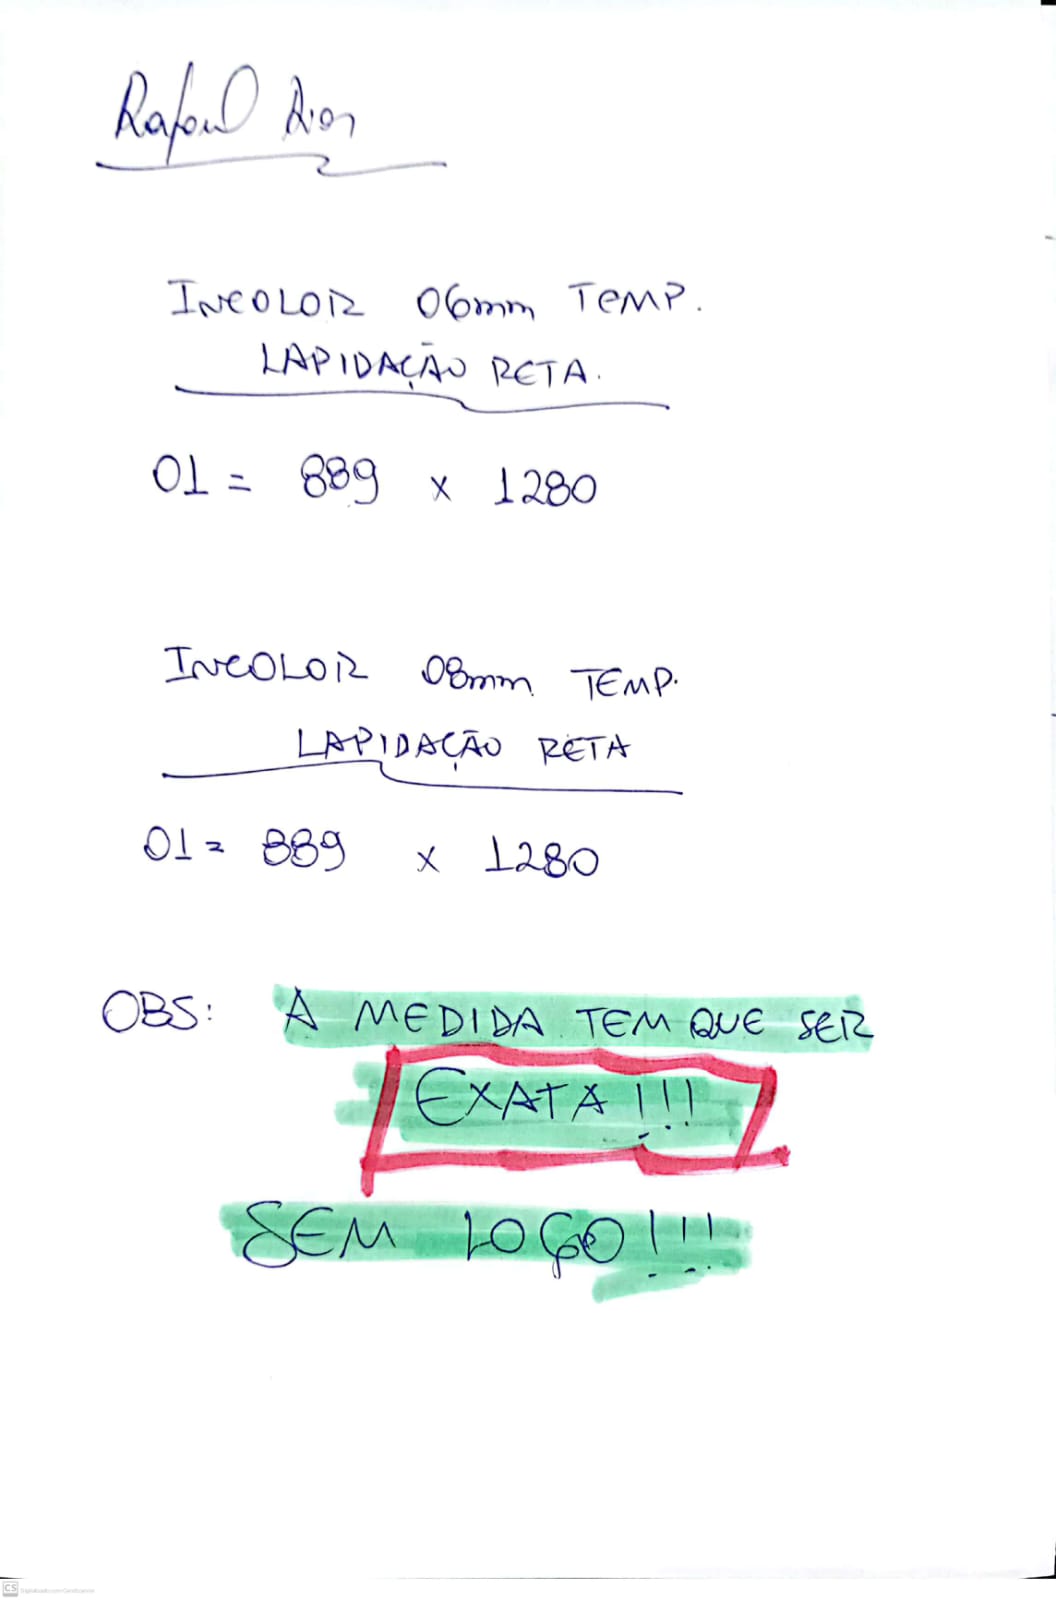 Rafael
INCOLOR 06mm TEMP.
LAPIDAÇÃO RETA.
01 = 889 x 1280
INCOLOR 08mm TEMP.
LAPIDAÇÃO RETA
01 = 889 x 1280
OBS: A MEDIDA TEM QUE SER
EXATA!!!
SEM LOGO!!!
CS Digitalizado com CamScanner